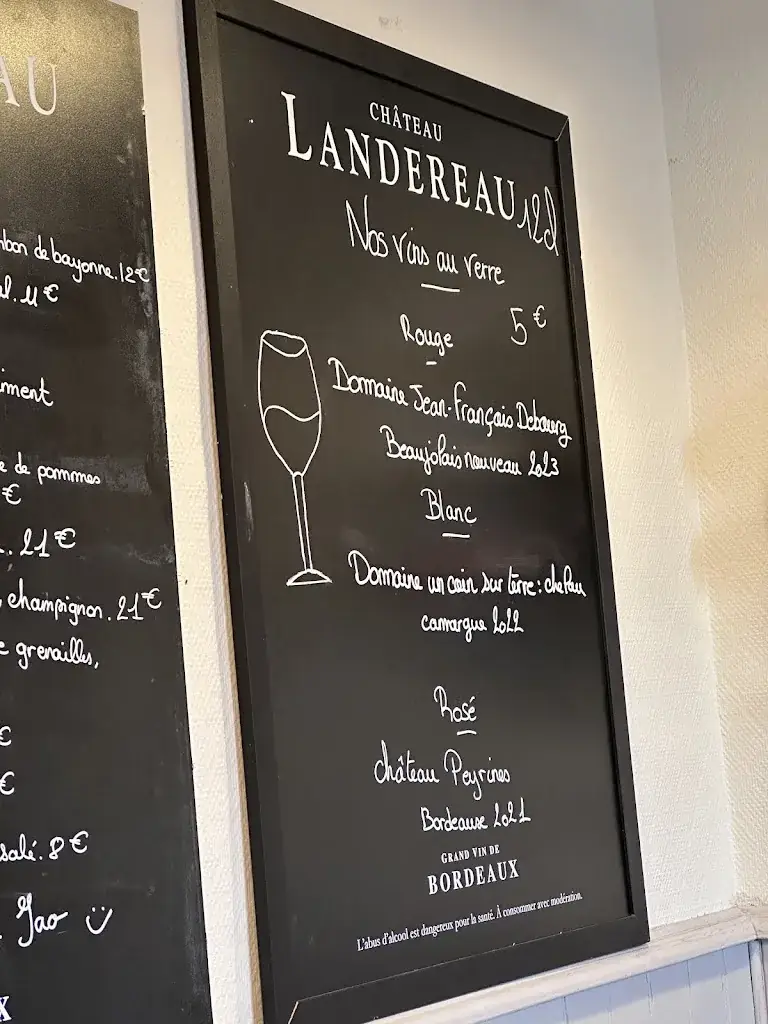 AU
bon de bayonne. 12€
. 11€
iment
e de pommes
€
. 21€
champignon. 21€
e grenailles,
€
€
salé. 8€
Jao
X
CHÂTEAU
LANDEREAU
12cl
Nos vins au verre
Rouge 5€
Domaine Jean-François Debourg
Beaujolais nouveau 2023
Blanc
Domaine un coin sur terre:
camargue 2022
Rosé
château Peyrines
Bordeause 2021
GRAND VIN DE
BORDEAUX
L'abus d'alcool est dangereux pour la santé. À consommer avec modération.